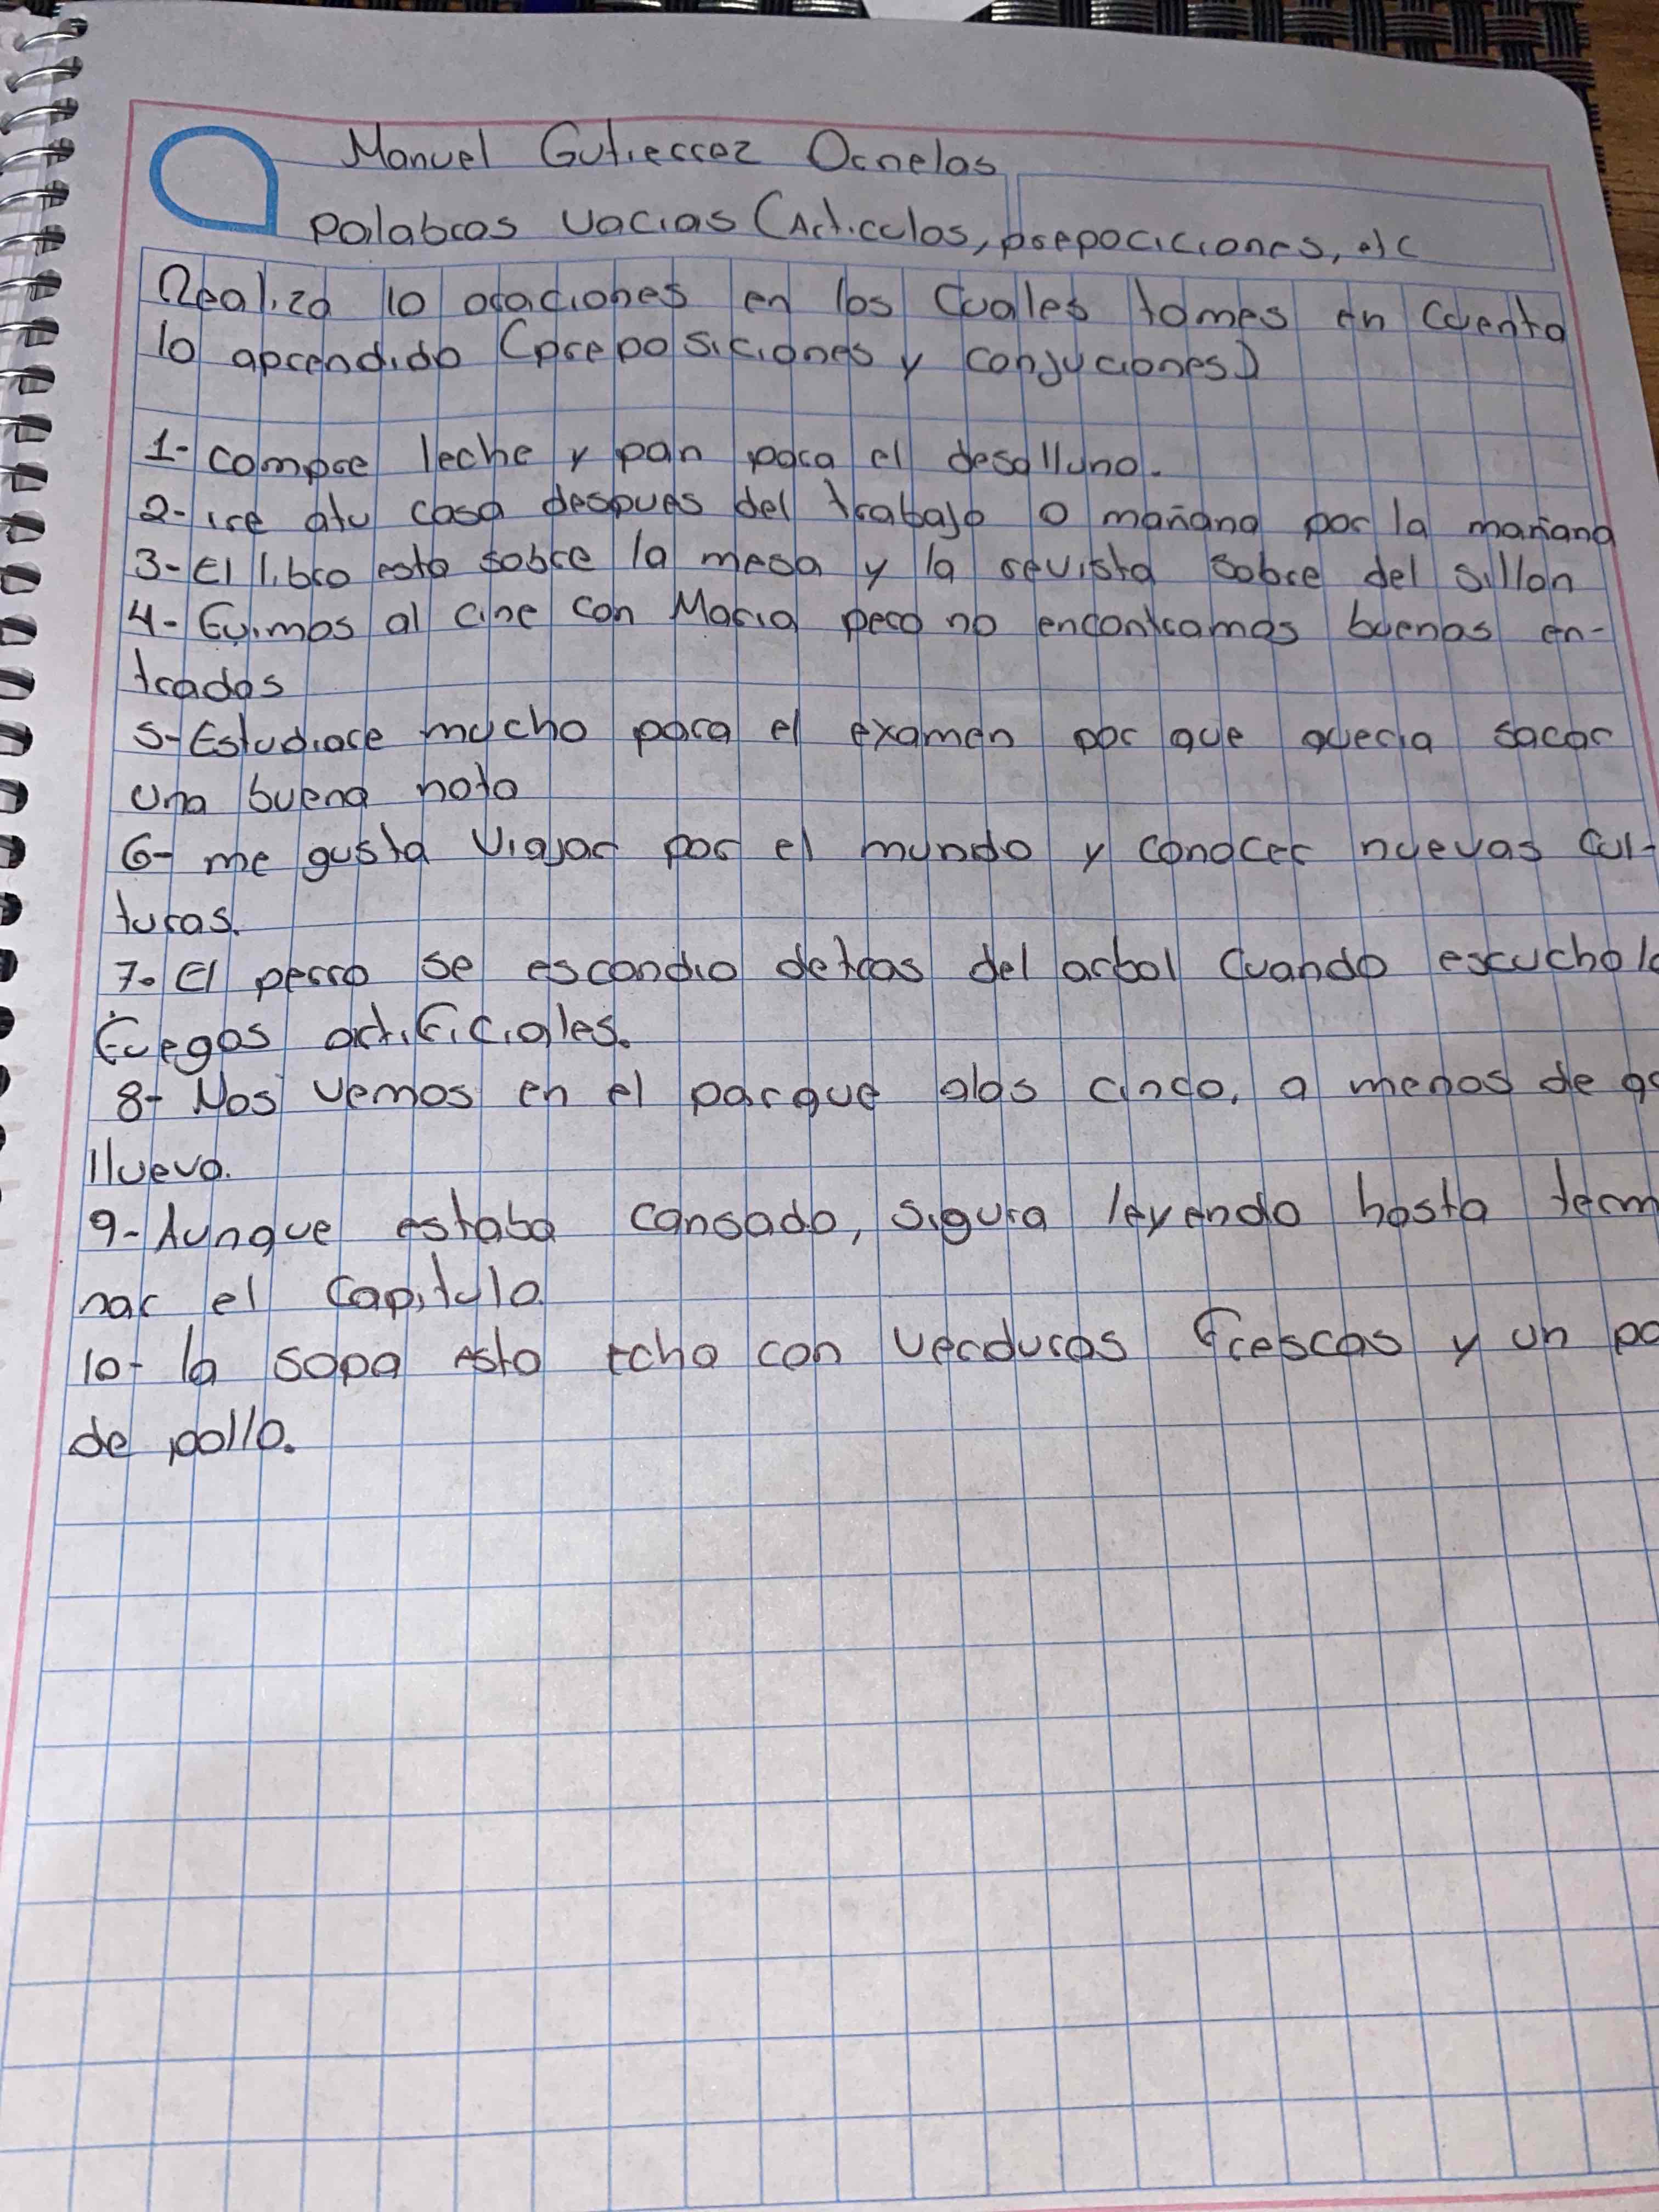 Manuel Gutierrez Ornelas
Palabras vacias (Articulos, prepociciones, etc
Realiza 10 oraciones en los cuales tomes en cuenta
lo aprendido (preposiciones y conjuciones)
1- compre leche y pan para el desalluno.
2- ire atu casa despues del trabajo o mañana por la mañana
3- El libro esta sobre la mesa y la revista sobre del sillon
4- Fuimos al cine con Maria pero no encontramos buenas en-
tradas
5- Estudiare mucho para el examen por que queria sacar
una buena nota
6- me gusta viajar por el mundo y conocer nuevas cul-
turas.
7. El perro se escondio detras del arbol cuando escucho
fuegos artificiales.
8- Nos vemos en el parque alas cinco, a menos de
llueva.
9- Aunque estaba cansado, leyendo hasta term
nar el capitulo
10- la sopa esta echa con verduras frescas y un po
de pollo.